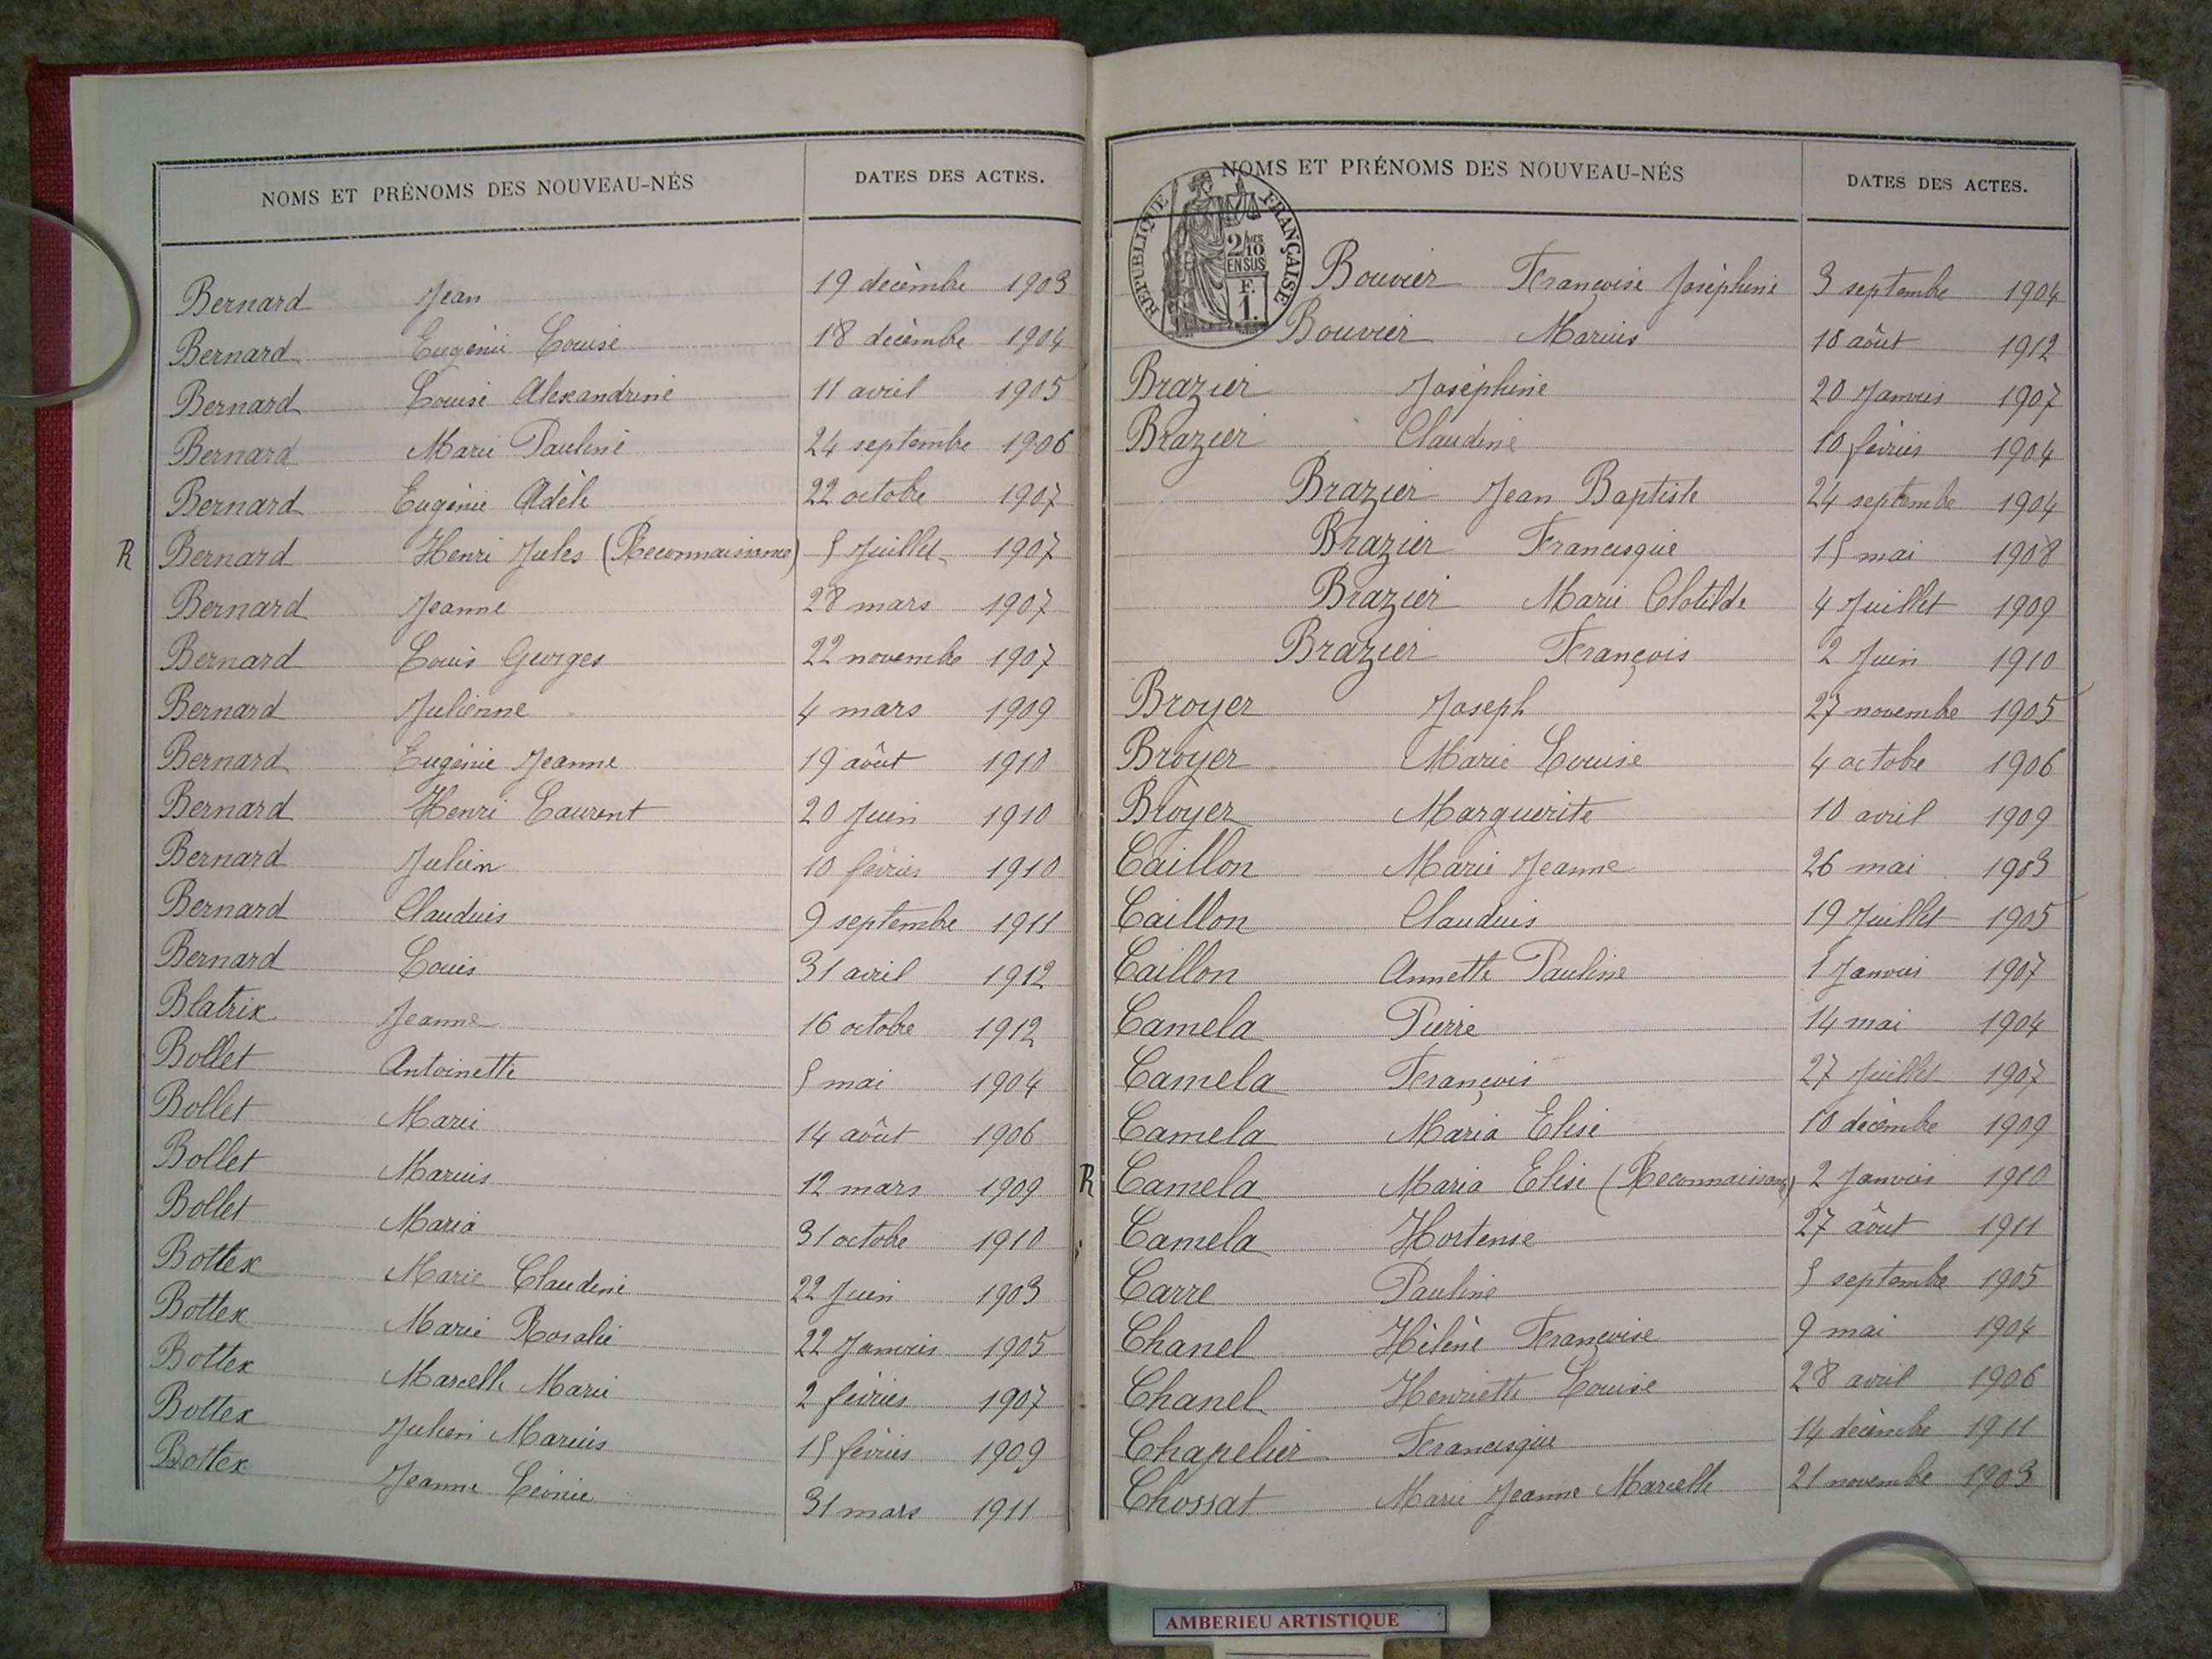 NOMS ET PRÉNOMS DES NOUVEAU-NÉS DATES DES ACTES.
Bernard Jean 19 décembre 1903
Bernard Eugénie Louise 18 décembre 1904
Bernard Louise Alexandrine 11 avril 1905
Bernard Marie Pauline 24 septembre 1906
Bernard Eugénie Adèle 22 octobre 1907
R Bernard Henri Jules (Reconnaissance) 5 Juillet 1907
Bernard Jeanne 28 mars 1907
Bernard Louis Georges 22 novembre 1907
Bernard Julienne 4 mars 1909
Bernard Eugénie Jeanne 19 août 1910
Bernard Henri Laurent 20 Juin 1910
Bernard Julien 10 février 1910
Bernard Claudius 9 septembre 1911
Bernard Louis 31 avril 1912
Blatrix Jeanne 16 octobre 1912
Bollet Antoinette 5 mai 1904
Bollet Marie 14 août 1906
Bollet Marius 12 mars 1909
Bollet Maria 31 octobre 1910
Bottex Marie Claudine 22 Juin 1903
Bottex Marie Rosalie 22 Janvier 1905
Bottex Marcelle Marie 2 février 1907
Bottex Julien Marius 15 février 1909
Bottex Jeanne Léonie 31 mars 1911
NOMS ET PRÉNOMS DES NOUVEAU-NÉS DATES DES ACTES.
RÉPUBLIQUE FRANÇAISE
2/10
EN SUS
F.
1.
Bouvier Françoise Joséphine 3 septembre 1904
Bouvier Marius 18 août 1912
Brazier Joséphine 20 Janvier 1907
Brazier Claudine 10 février 1904
Brazier Jean Baptiste 24 septembre 1904
Brazier Francisque 15 mai 1908
Brazier Marie Clotilde 4 Juillet 1909
Brazier François 2 Juin 1910
Broyer Joseph 27 novembre 1905
Broyer Marie Louise 4 octobre 1906
Broyer Marguerite 10 avril 1909
Caillon Marie Jeanne 26 mai 1903
Caillon Claudius 19 Juillet 1905
Caillon Annette Pauline 5 Janvier 1907
Camela Pierre 14 mai 1904
Camela François 27 Juillet 1907
Camela Maria Elise 10 décembre 1909
R Camela Maria Elise (Reconnaissance) 2 Janvier 1910
Camela Hortense 27 août 1911
Carre Pauline 5 septembre 1905
Chanel Hélène Françoise 9 mai 1904
Chanel Henriette Louise 28 avril 1906
Chapelier Francisque 14 décembre 1911
Chossat Marie Jeanne Marcelle 21 novembre 1903
AMBERIEU ARTISTIQUE